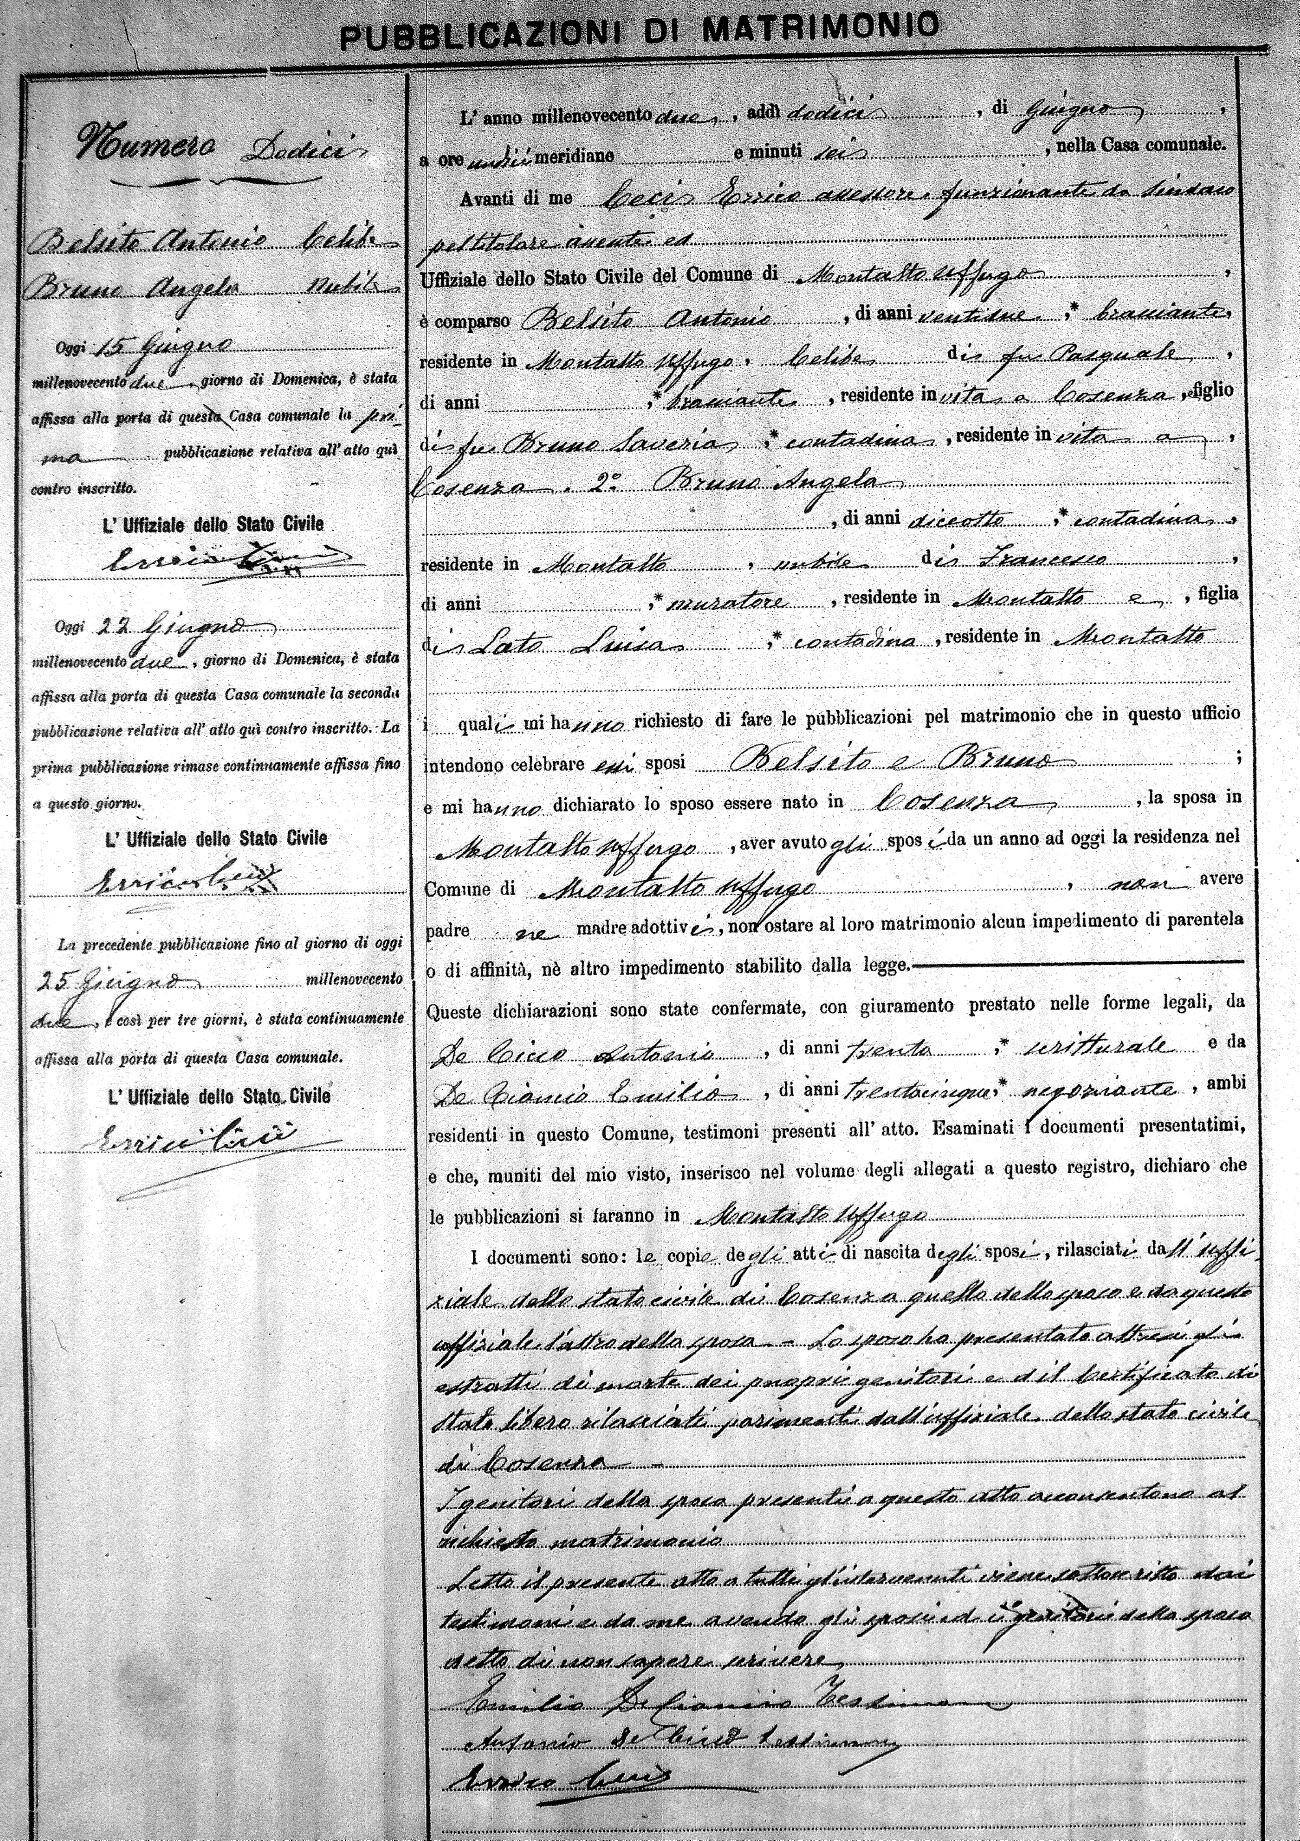 PUBBLICAZIONI DI MATRIMONIO
Numero Dodici
Belsito Antonio Celibe
Bruno Angela nubile
Oggi 15 Giugno
millenovecento due, giorno di Domenica, è stata
affissa alla porta di questa Casa comunale la pri-
ma pubblicazione relativa all'atto quì
contro inscritto.
L'Uffiziale dello Stato Civile
Errico Ceci
Oggi 22 Giugno
millenovecento due, giorno di Domenica, è stata
affissa alla porta di questa Casa comunale la seconda
pubblicazione relativa all'atto quì contro inscritto. La
prima pubblicazione rimase continuamente affissa fino
a questo giorno.
L'Uffiziale dello Stato Civile
Errico Ceci
La precedente pubblicazione fino al giorno di oggi
25 Giugno millenovecento
due, e così per tre giorni, è stata continuamente
affissa alla porta di questa Casa comunale.
L'Uffiziale dello Stato Civile
Errico Ceci
L'anno millenovecento due, addì dodici, di Giugno,
a ore undici meridiane e minuti sei, nella Casa comunale.
Avanti di me Ceci Errico assessore funzionante da Sindaco
pel titolare assente ed
Uffiziale dello Stato Civile del Comune di Montalto Uffugo,
è comparso Belsito Antonio, di anni ventidue, * bracciante,
residente in Montalto Uffugo, Celibe di fu Pasquale,
di anni , * bracciante, residente in vita a Cosenza, figlio
di fu Bruno Saveria, * contadina, residente in vita a,
Cosenza. 2° Bruno Angela
, di anni diciotto, * contadina,
residente in Montalto, nubile di Francesco,
di anni , * muratore, residente in Montalto e, figlia
di Lato Luisa, * contadina, residente in Montalto
i quali mi hanno richiesto di fare le pubblicazioni pel matrimonio che in questo ufficio
intendono celebrare essi sposi Belsito e Bruno;
e mi hanno dichiarato lo sposo essere nato in Cosenza, la sposa in
Montalto Uffugo, aver avuto gli sposi da un anno ad oggi la residenza nel
Comune di Montalto Uffugo, non avere
padre ne madre adottivi, non ostare al loro matrimonio alcun impedimento di parentela
o di affinità, nè altro impedimento stabilito dalla legge.
Queste dichiarazioni sono state confermate, con giuramento prestato nelle forme legali, da
De Cicco Antonio, di anni trenta, * scritturale e da
De Ciancio Emilio, di anni trentacinque, * negoziante, ambi
residenti in questo Comune, testimoni presenti all'atto. Esaminati i documenti presentatimi,
e che, muniti del mio visto, inserisco nel volume degli allegati a questo registro, dichiaro che
le pubblicazioni si faranno in Montalto Uffugo
I documenti sono: le copie degli atti di nascita degli sposi, rilasciati dall'uffi-
ziale dello stato civile di Cosenza quello dello sposo e da questo
uffiziale l'altro della sposa - Lo sposo ha presentato altresì gli
estratti di morte dei proprii genitori e d il Certificato di
Stato libero rilasciati parimenti dall'uffiziale dello stato civile
di Cosenza -
I genitori della sposa presenti a questo atto acconsentono al
richiesto matrimonio
Letto il presente atto a tutti gl'intervenuti viene sottoscritto dai
testimoni e da me avendo gli sposi ed i genitori della sposa
detto di non sapere scrivere
Emilio De Ciancio Testimone
Antonio De Cicco testimone
Errico Ceci